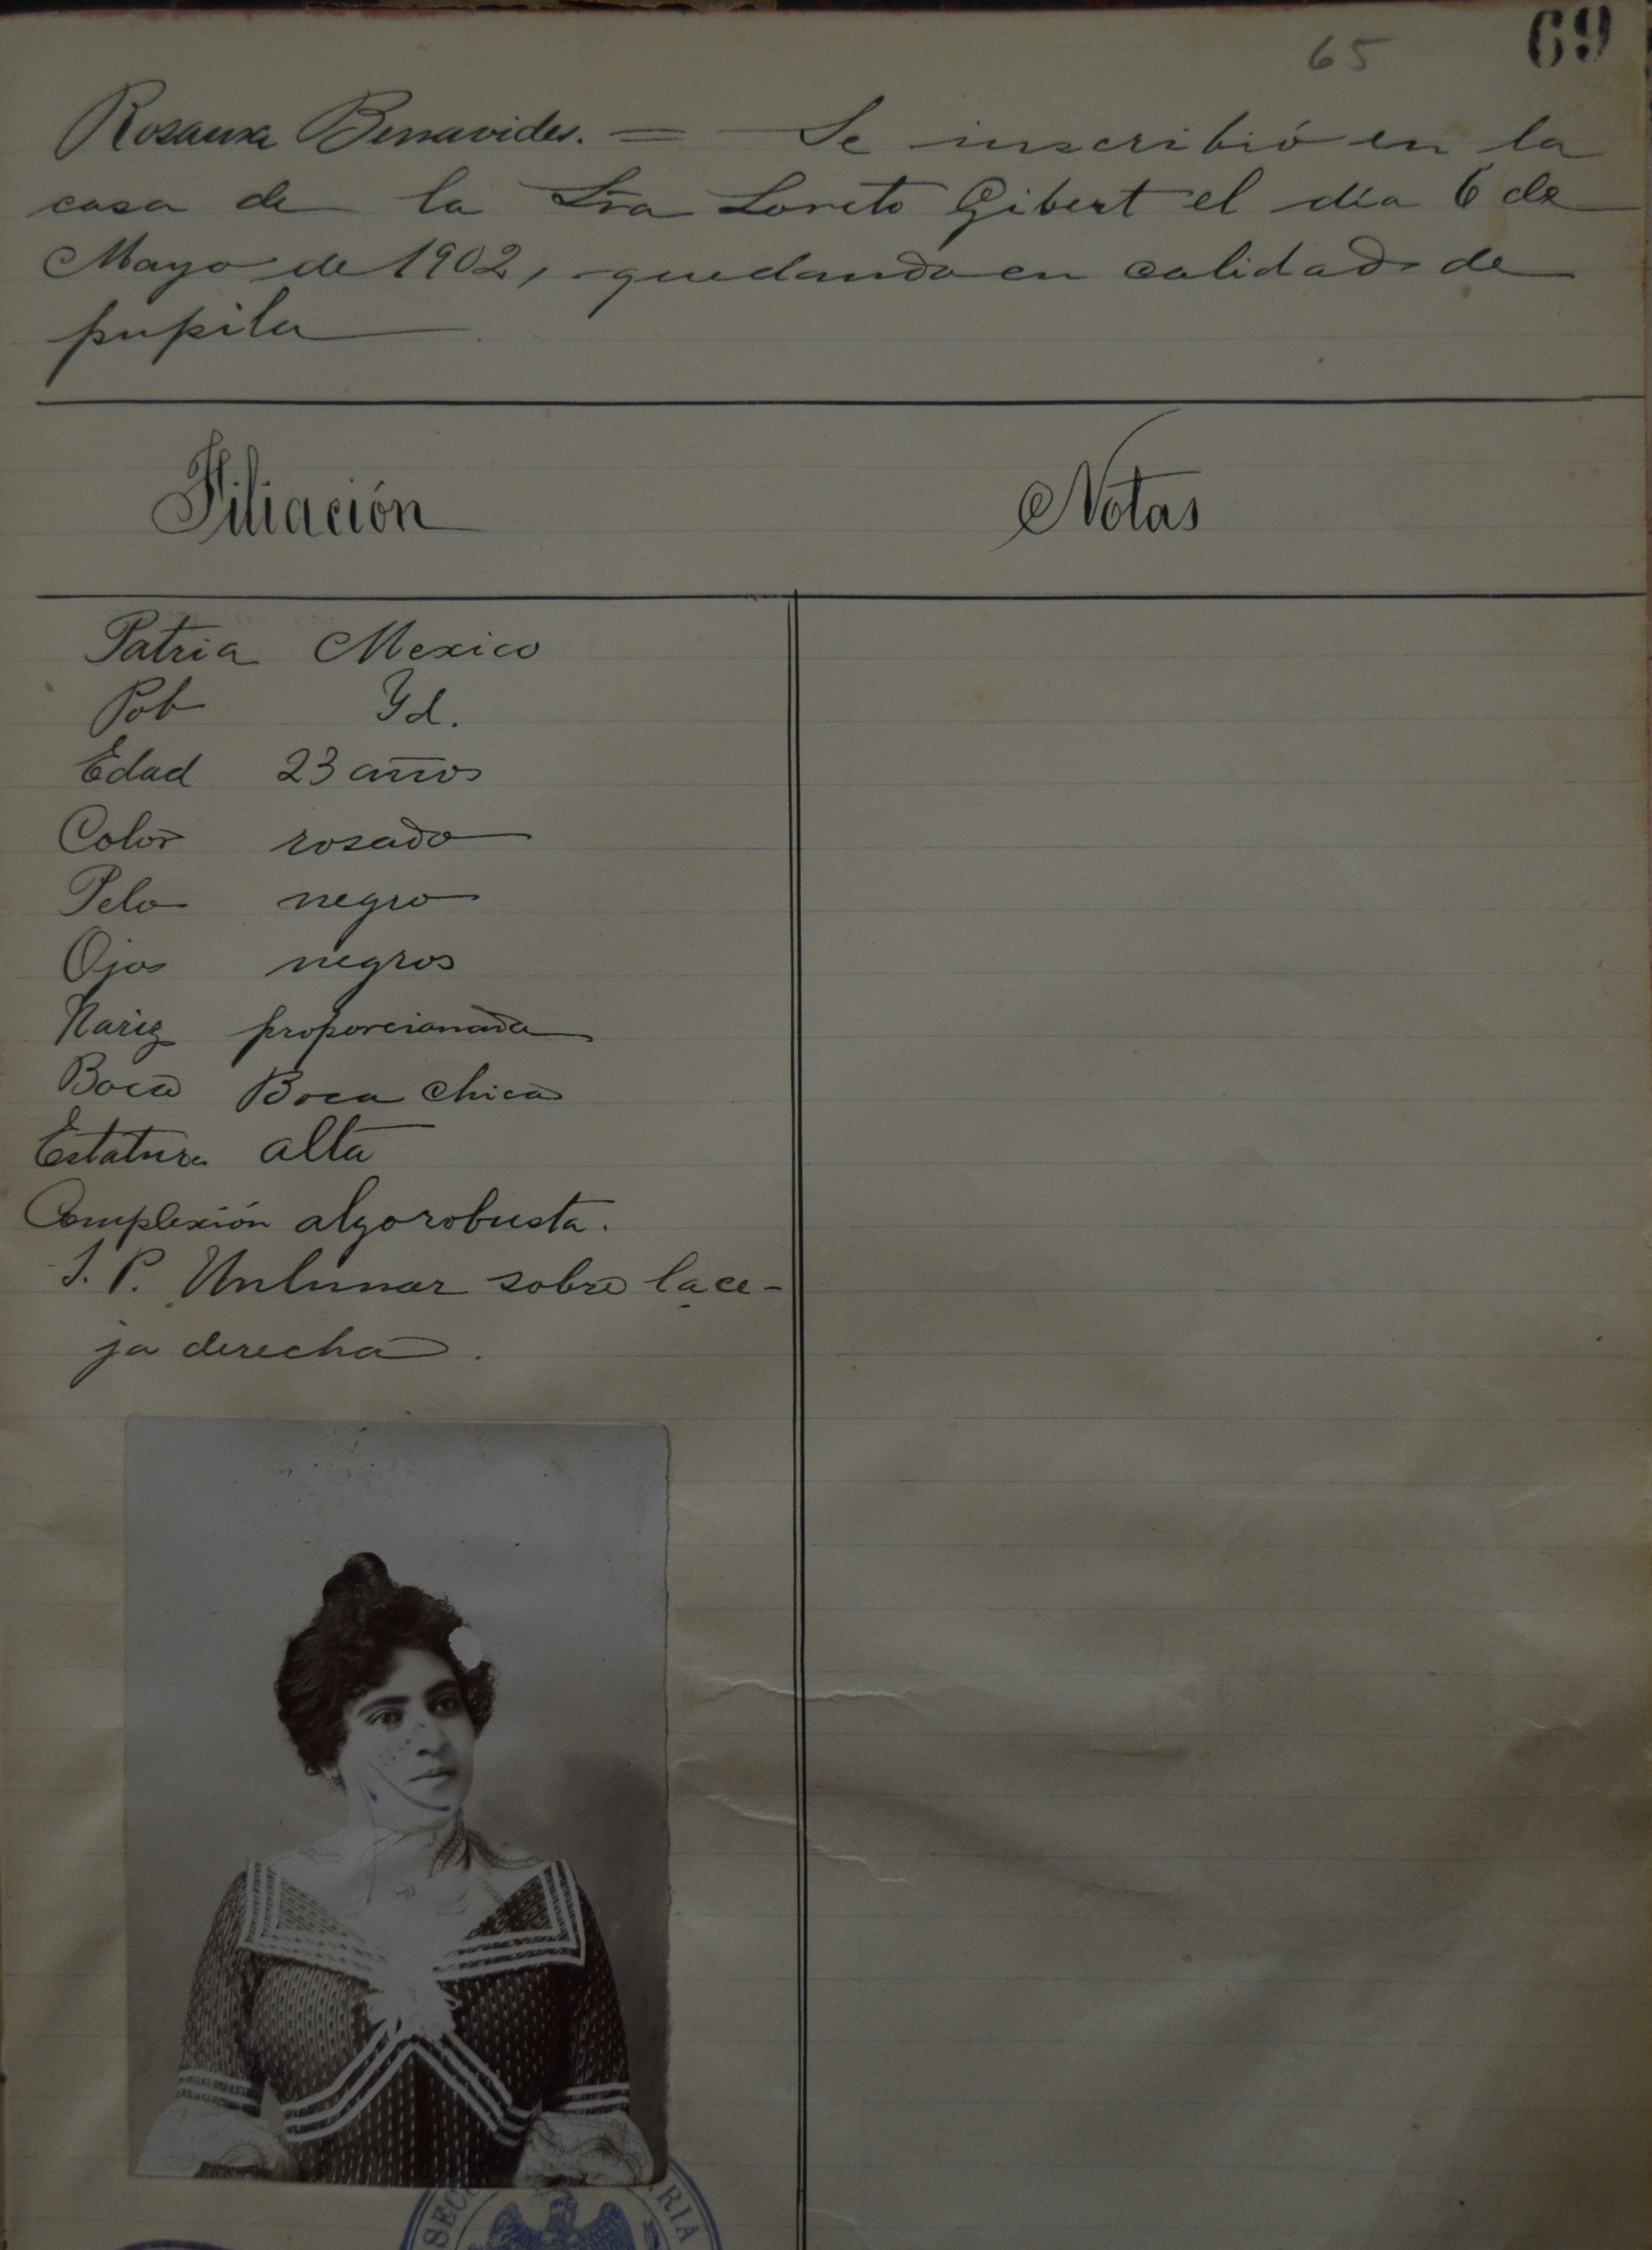 65 69
Rosaura Benavides. = Se inscribió en la
casa de la Sra Loreto Gibert el día 6 de
Mayo de 1902, quedando en calidad de
pupila
Filiación Notas
Patria Mexico
Pob Yd.
Edad 23 años
Color rosado
Pelo negro
Ojos negros
Nariz proporcionada
Boca Boca chica
Estatura alta
Complexión algo robusta.
S. P. Un lunar sobre la ce-
ja derecha.
SEC ARIA